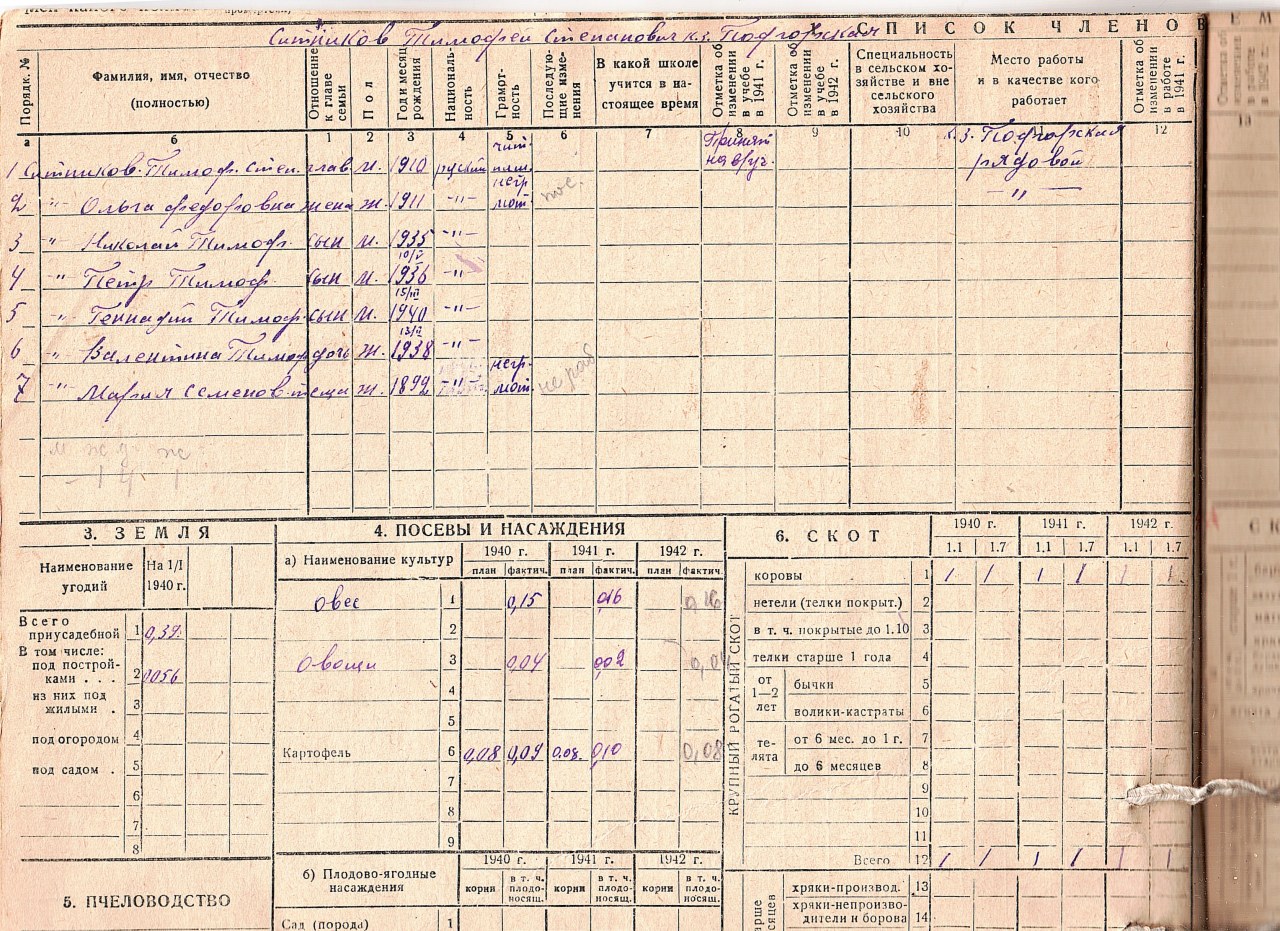 СПИСОК ЧЛЕНОВ
Ситников Тимофей Степанович к.з. Подгорская
Порядк. №
Фамилия, имя, отчество (полностью)
Отношение к главе семьи
Пол
Год и месяц рождения
Националь-ность
Грамот-ность
Последую-щие изме-нения
В какой школе учится в на-стоящее время
Отметка об изменении в учебе в 1941 г.
Отметка об изменении в учебе в 1942 г.
Специальность в сельском хо-зяйстве и вне сельского хозяйства
Место работы и в качестве кого работает
Отметка об изменении в работе в 1941 г.
а б 1 2 3 4 5 6 7 8 9 10 11 12
1 Ситников Тимоф. Степ. глав. м. 1910 руский чит. пиш. Принят на вруч. к.з. Подгорская рядовой
2 -"- Ольга Федоровна жена ж. 1911 -"- негр мот. -"-
3 -"- Николай Тимоф. сын м. 1935 -"-
4 -"- Петр Тимоф. сын м. 10/V 1936 -"-
5 -"- Геннадий Тимоф. сын м. 15/III 1940 -"-
6 -"- Валентина Тимоф дочь ж. 13/II 1938 -"-
7 -"- Мария Семенов. теща ж. 1892 -"- негр. мот. не раб
3. ЗЕМЛЯ
Наименование угодий
На 1/I 1940 г.
Всего приусадебной 1 0,39
В том числе:
под построй-ками . . . 2 0056
из них под жилыми . 3
под огородом 4
под садом . 5
6
7
8
5. ПЧЕЛОВОДСТВО
4. ПОСЕВЫ И НАСАЖДЕНИЯ
а) Наименование культур
1940 г. 1941 г. 1942 г.
план фактич. план фактич. план фактич.
овес 1 0,15 016 0,16
2
овощи 3 0,04 002 0,04
4
5
Картофель 6 0,08 0,09 0.08 0,10 0,08
7
8
9
б) Плодово-ягодные насаждения
1940 г. 1941 г. 1942 г.
корни в т. ч. плодо-носящ. корни в т. ч. плодо-носящ. корни в т. ч. плодо-носящ.
Сад (порода) 1
6. СКОТ
1940 г. 1941 г. 1942 г.
1.1 1.7 1.1 1.7 1.1 1.7
КРУПНЫЙ РОГАТЫЙ СКОТ
коровы 1 1 1 1 1 1 1
нетели (телки покрыт.) 2
в т. ч. покрытые до 1.10 3
телки старше 1 года 4
от 1—2 лет
бычки 5
волики-кастраты 6
те-лята
от 6 мес. до 1 г. 7
до 6 месяцев 8
9
10
11
Всего 12 1 1 1 1 1 1
хряки-производ. 13
хряки-непроизво-дители и борова 14